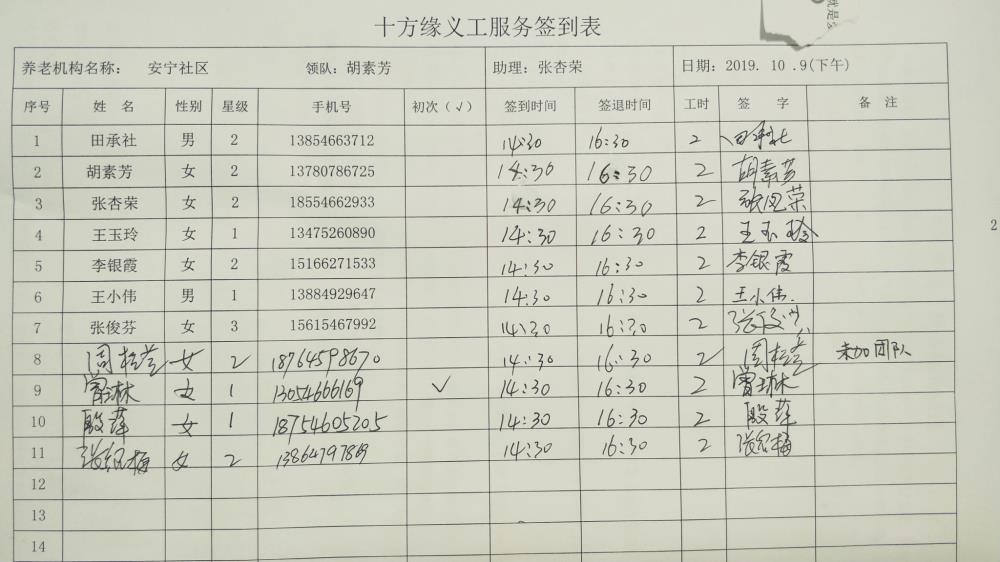 就是
十方缘义工服务签到表
养老机构名称： 安宁社区 领队：胡素芳 助理：张杏荣 日期：2019. 10 .9(下午)
序号 姓 名 性别 星级 手机号 初次（√） 签到时间 签退时间 工时 签 字 备 注
1 田承社 男 2 13854663712 14:30 16:30 2 田承社
2 胡素芳 女 2 13780786725 14:30 16:30 2 胡素芳
3 张杏荣 女 2 18554662933 14:30 16:30 2 张杏荣
4 王玉玲 女 1 13475260890 14:30 16:30 2 王玉玲
5 李银霞 女 2 15166271533 14:30 16:30 2 李银霞
6 王小伟 男 1 13884929647 14:30 16:30 2 王小伟.
7 张俊芬 女 3 15615467992 14:30 16:30 2 张俊芬
8 周桂兰 女 2 18764598670 14:30 16:30 2 周桂兰 未加团队
9 曾琳 女 1 13054666169 √ 14:30 16:30 2 曾琳
10 殷萍 女 1 18754605205 14:30 16:30 2 殷萍
11 张纪梅 女 2 14:30 16:30 2 张纪梅
12
13
14
2